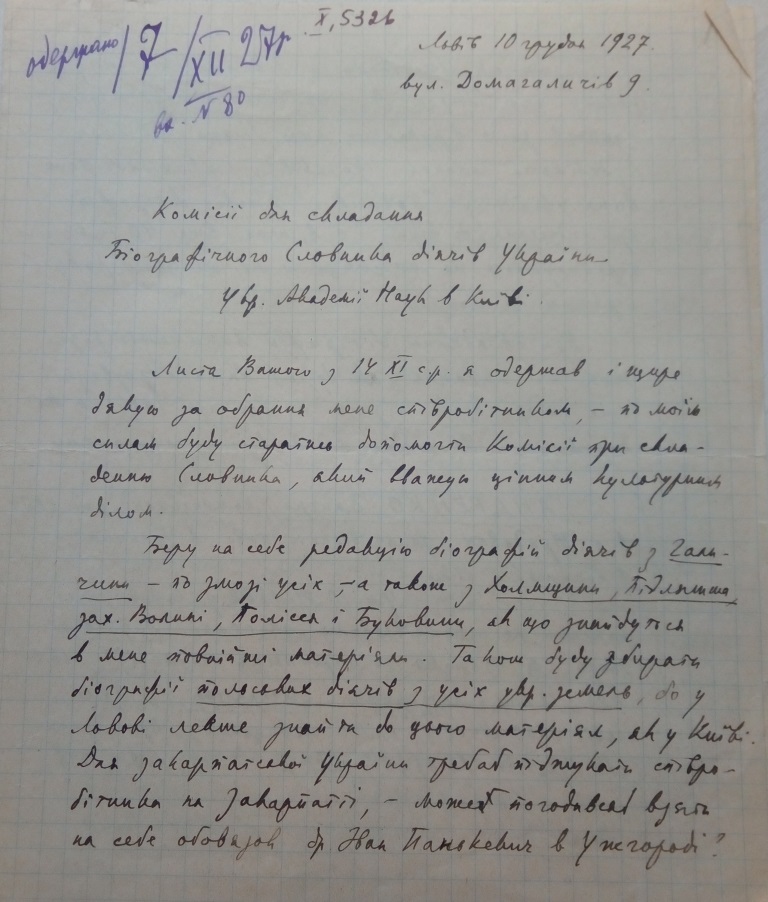 X, 5326
одержано 7/XII 27р.
вх. N 80
Львів 10 грудня 1927.
вул. Домагаличів 9.
Комісії для складання
Біографічного Словника діячів України
Укр. Академії Наук в Київі.
Листа Вашого з 14 XI с.р. я одержав і щиро
дякую за обрання мене співробітником, – по моїм
силам буду старатись допомогти Комісії при скла-
денню Словника, який вважаю цінним культурним
ділом.
Беру на себе редакцію біографій діячів з Гали-
чини – по змозі усіх, – а також з Холмщини, Підляшша,
зах. Волині, Полісся і Буковини, як що знайдуться
в мене повнійші матеріяли. Також буду збирати
біографії
діячів з усіх укр. земель, бо у
Львові легше знайти до цього матеріял, як у Київі.
Для закарпатської України требаб підшукати співро-
бітника на Закарпаттї, – може погодивсяб взяти
на себе обовязок др Іван Панькевич в Ужгороді?